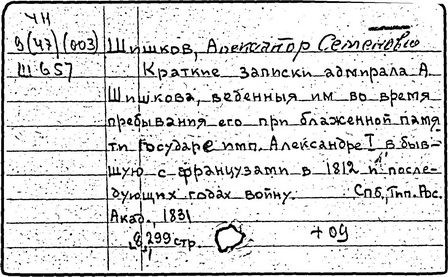 ЧН
9(47)(003) Шишков, Александр Семенович
Ш 657 Краткие записки адмирала А.
Шишкова, веденныя им во время
пребывания его при блаженной памя
ти государе имп. Александре I в быв-
шую с французами в 1812 и после-
дующих годах войну. Спб, Тип. Рос.
Акад. 1831
8, 299 стр. +09